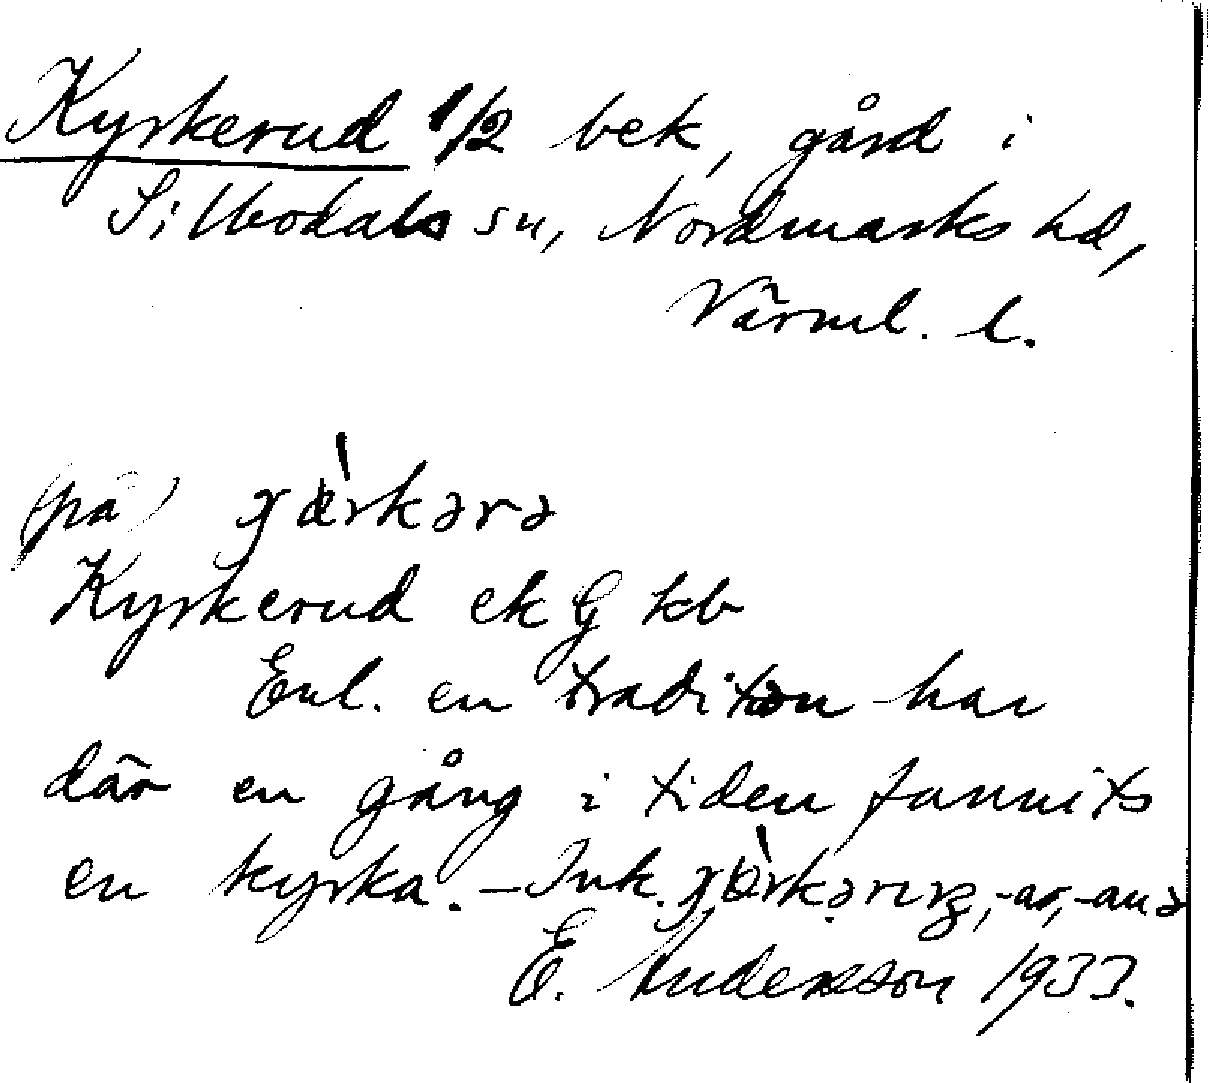 Kyrkerud 1/2 bek, gård i
Sillbodals sn, Nordmarks hd,
Värml. l.
(på)
Kyrkerud ek G kb
Enl. en tradition har
där en gång i tiden funnits
en kyrka. - Ink. -ar, -anə
E. Andersson 1933.